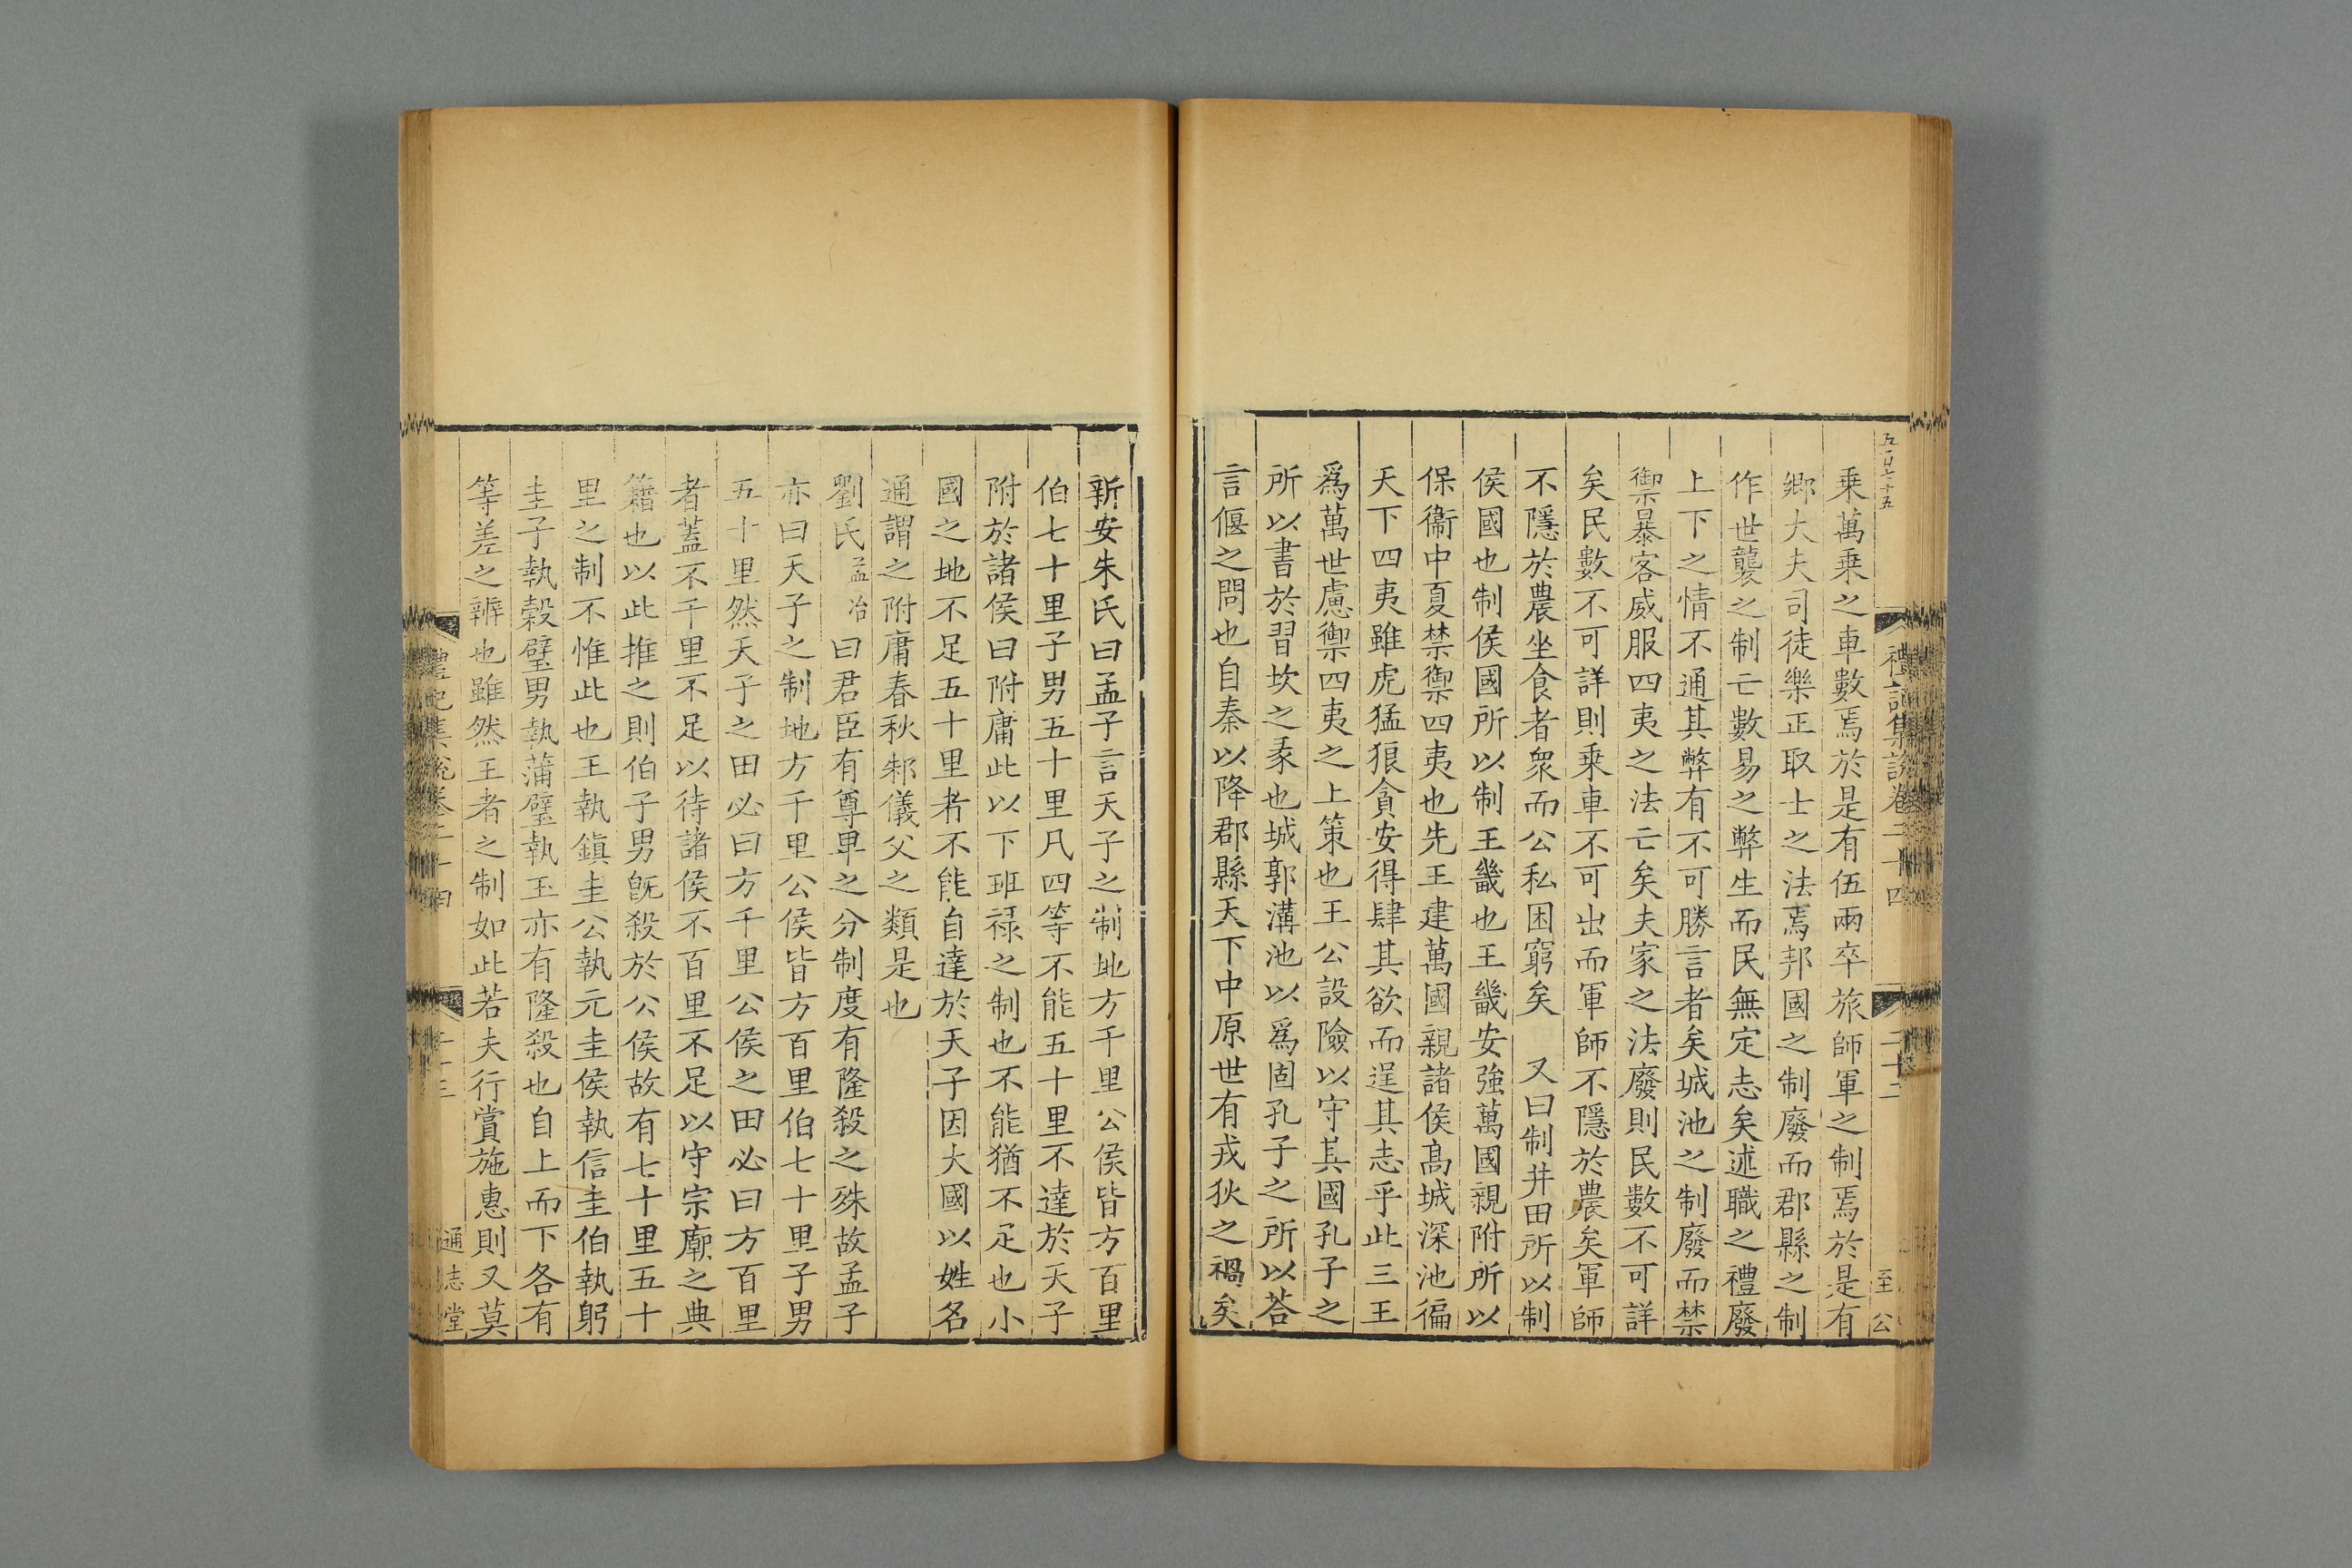 禮記集說卷二十四
二十二
至 公
乗萬乗之車數焉於是有伍兩卒旅師軍之制焉於是有
鄉大夫司徒樂正取士之法焉邦國之制廢而郡縣之制
作世襲之制亡數易之弊生而民無定志矣述職之禮廢
上下之情不通其弊有不可勝言者矣城池之制廢而禁
禦暴客威服四夷之法亡矣夫家之法廢則民數不可詳
矣民數不可詳則乗車不可出而軍師不隱於農矣軍師
不隱於農坐食者衆而公私困窮矣　又曰制井田所以制
侯國也制侯國所以制王畿也王畿安強萬國親附所以
保衞中夏禁禦四夷也先王建萬國親諸侯髙城深池徧
天下四夷雖虎猛狼貪安得肆其欲而逞其志乎此三王
爲萬世慮禦四夷之上策也王公設險以守其國孔子之
所以書於習坎之彖也城郭溝池以爲固孔子之所以荅
言偃之問也自秦以降郡縣天下中原世有戎狄之禍矣
新安朱氏曰孟子言天子之制地方千里公侯皆方百里
伯七十里子男五十里凡四等不能五十里不達於天子
附於諸侯曰附庸此以下班禄之制也不能猶不足也小
國之地不足五十里者不能自達於天子因大國以姓名
通謂之附庸春秋邾儀父之類是也
劉氏孟冶曰君臣有尊卑之分制度有隆殺之殊故孟子
亦曰天子之制地方千里公侯皆方百里伯七十里子男
五十里然天子之田必曰方千里公侯之田必曰方百里
者蓋不千里不足以待諸侯不百里不足以守宗廟之典
籍也以此推之則伯子男旣殺於公侯故有七十里五十
里之制不惟此也王執鎮圭公執元圭侯執信圭伯執躬
圭子執穀璧男執蒲璧執玉亦有隆殺也自上而下各有
等差之辨也雖然王者之制如此若夫行賞施惠則又莫
通志堂